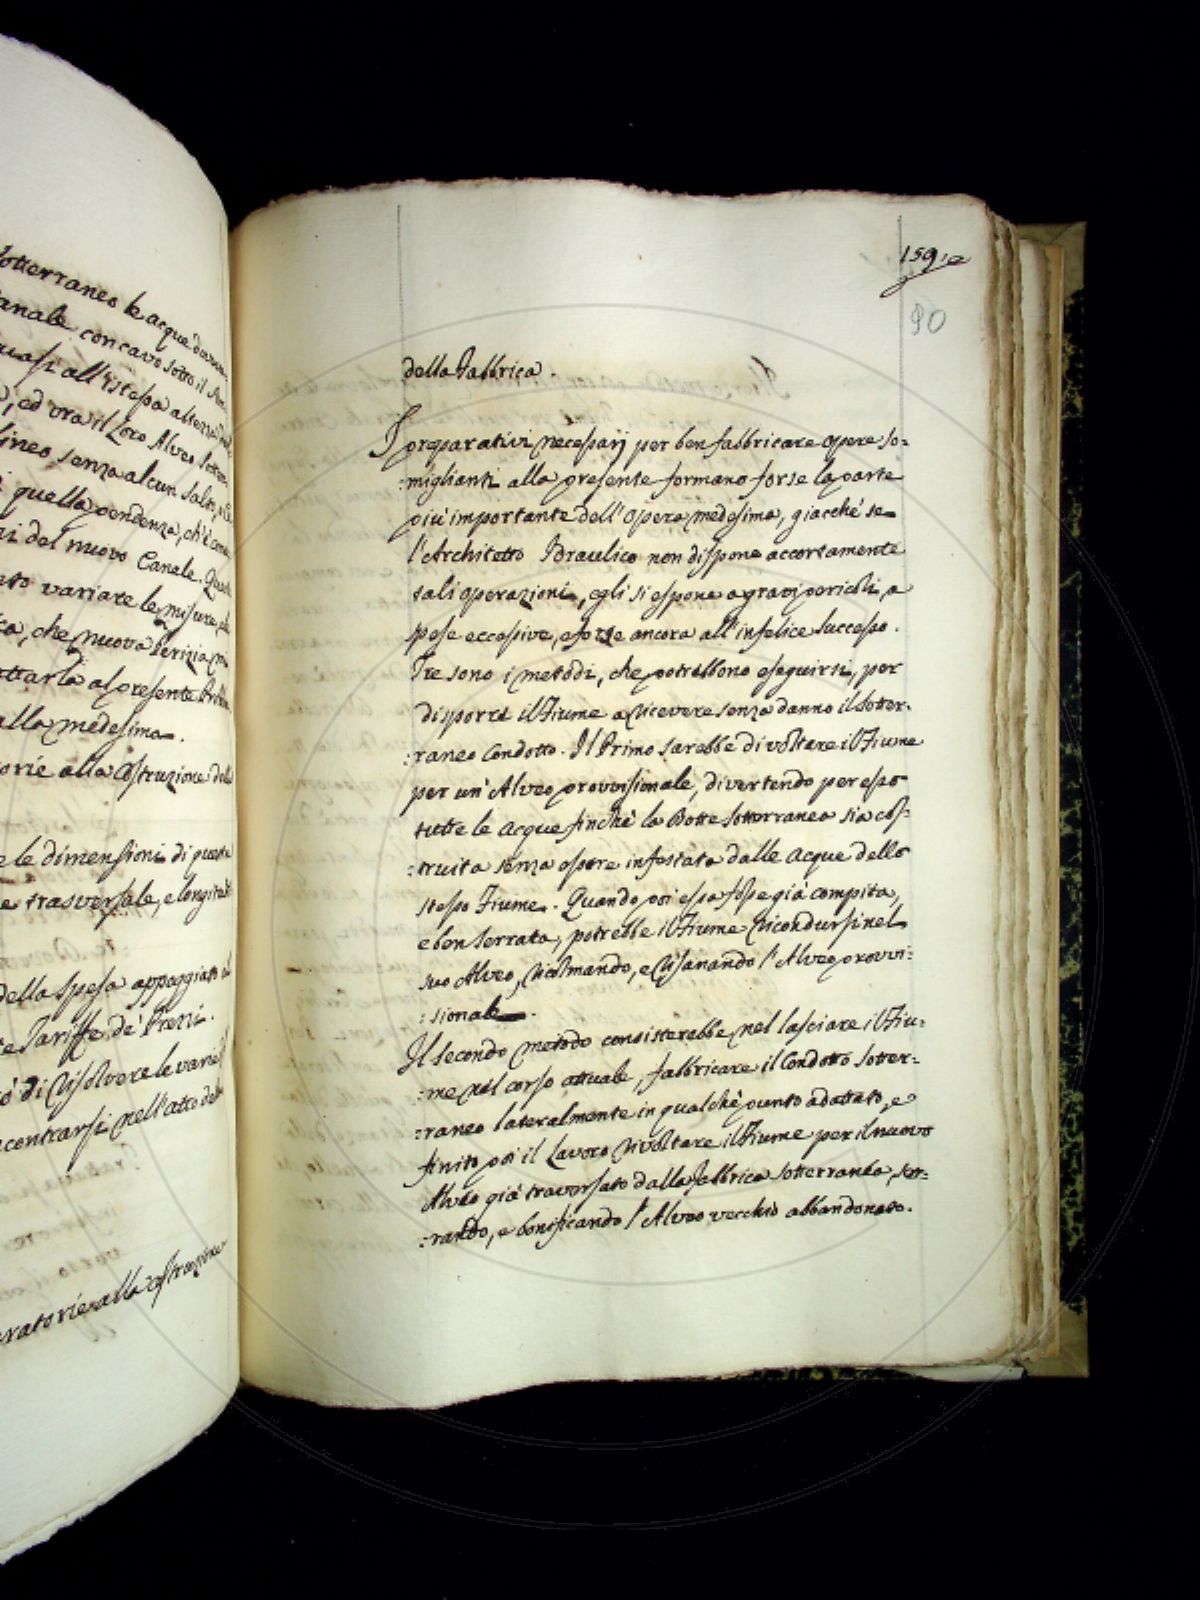 sotterraneo le acque
Canale concavo sotto il
quasi all'istessa altezza
, ed ora il loro Alveo
lineo senza alcun salto,
quella pendenza, ch'è
del nuovo Canale.
variare le misure,
, che nuova Perizia
al presente
alla medesima.
alla Costruzione
le dimensioni di questa
e trasversale, e
della spesa appoggiato
e Tariffe de' Prezzi.
di risolvere le varie
incontrarsi nell'atto
alla costruzione
159.
90
della Fabbrica.
I preparativi necessarj per ben fabbricare opere so=
:miglianti alla presente formano forse la parte
più importante dell'Opera medesima, giacchè se
l'Architetto Idraulico non dispone accortamente
tali operazioni, egli si espone a gravi pericoli, a
spese eccessive, e forse ancora all'infelice successo.
Tre sono i metodi, che potrebbono eseguirsi, per
disporre il Fiume a ricevere senza danno il sotter=
:raneo Condotto. Il Primo sarebbe di voltare il Fiume
per un'Alveo provvisionale, divertendo per esso
tutte le acque finchè la Botte sotterranea sia cos=
:truita senza essere infestata dalle Acque dello
stesso Fiume. Quando poi essa fosse già compita,
e ben serrata, potrebbe il Fiume ricondursi nel
suo Alveo, ricolmando, e risanando l'Alveo provvi=
:sionale.
Il secondo metodo consisterebbe nel lasciare il Fiu=
:me nel corso attuale, fabbricare il Condotto sotter=
:raneo lateralmente in qualchè punto adattato, e
finito poi il Lavoro rivoltare il Fiume per il nuovo
Alveo già traversato dalla fabbrica sotterranea, ser=
:rando, e bonificando l'Alveo vecchio abbandonato.